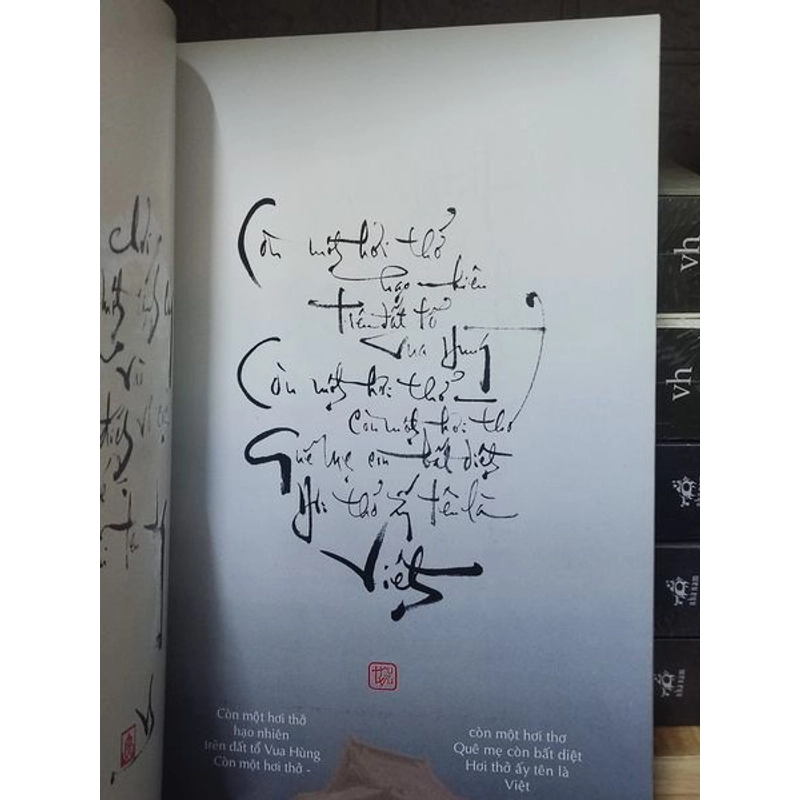 Còn một hơi thở
hạo nhiên
trên đất tổ
Vua Hùng
Còn một hơi thở -
Còn một hơi thơ
Quê mẹ còn bất diệt
Hơi thở ấy tên là
Việt
Còn một hơi thở
hạo nhiên
trên đất tổ Vua Hùng
Còn một hơi thở -
còn một hơi thơ
Quê mẹ còn bất diệt
Hơi thở ấy tên là
Việt
vh
vh
nhã nam
nhã nam